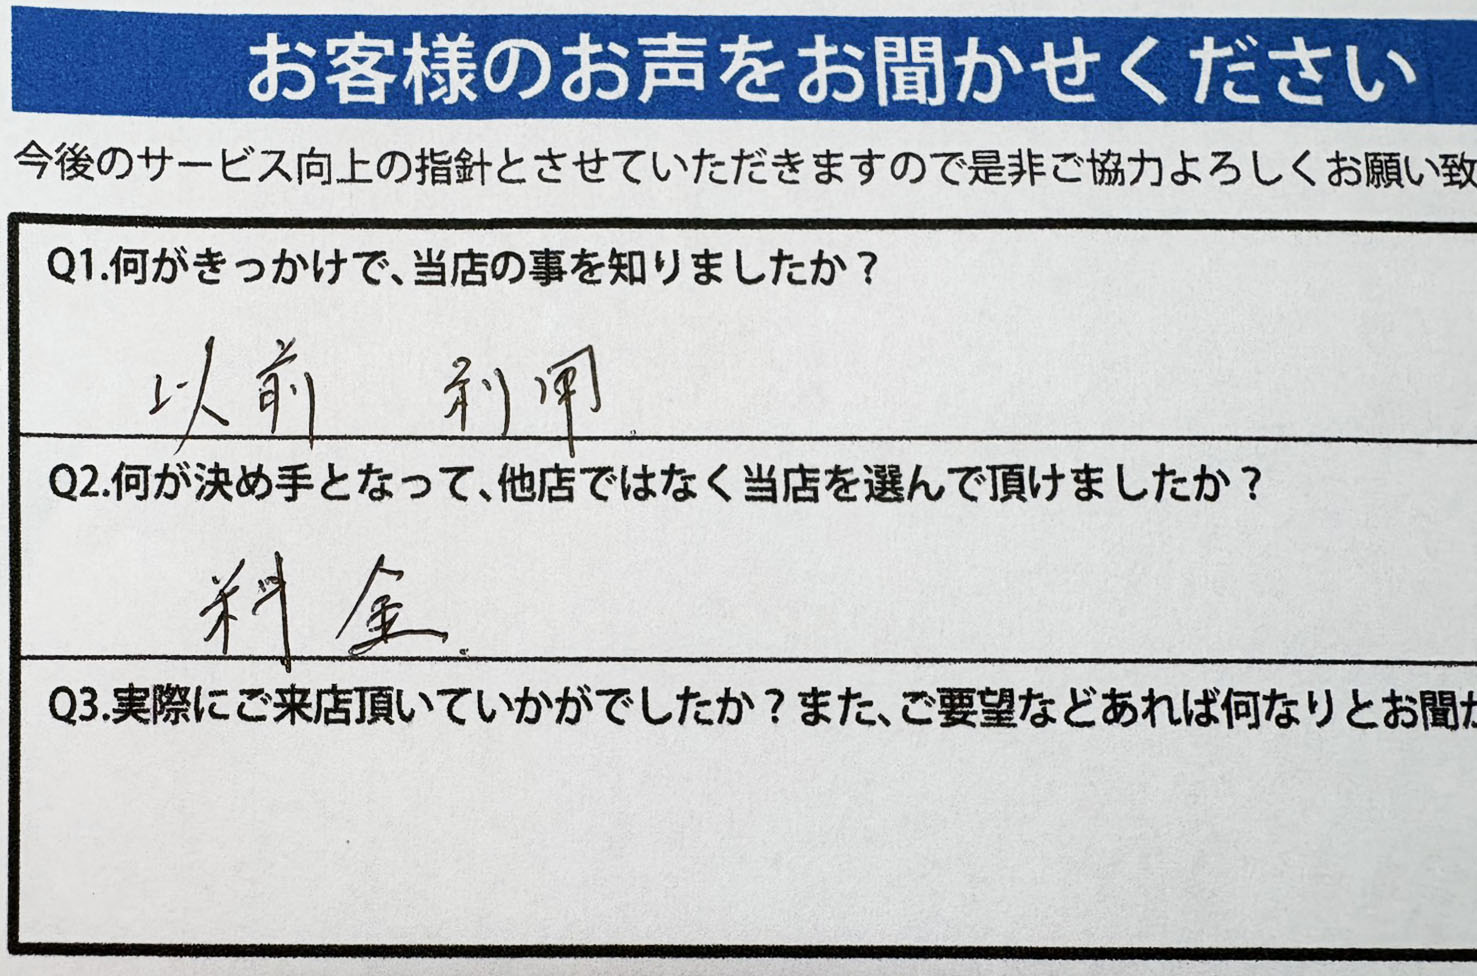 お客様のお声をお聞かせください
今後のサービス向上の指針とさせていただきますので是非ご協力よろしくお願い致
Q1.何がきっかけで、当店の事を知りましたか？
以前 利用.
Q2.何が決め手となって、他店ではなく当店を選んで頂けましたか？
料金.
Q3.実際にご来店頂いていかがでしたか？また、ご要望などあれば何なりとお聞か